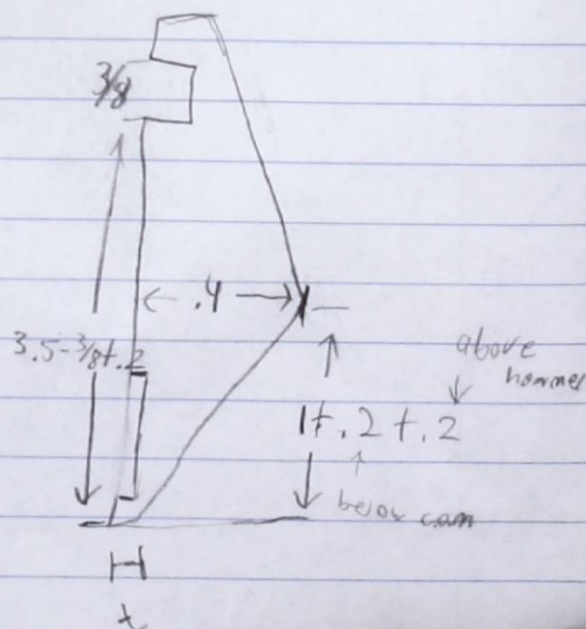 3/8
.4
3.5-3/8+.2
above
hammer
1+.2+.2
below cam
t